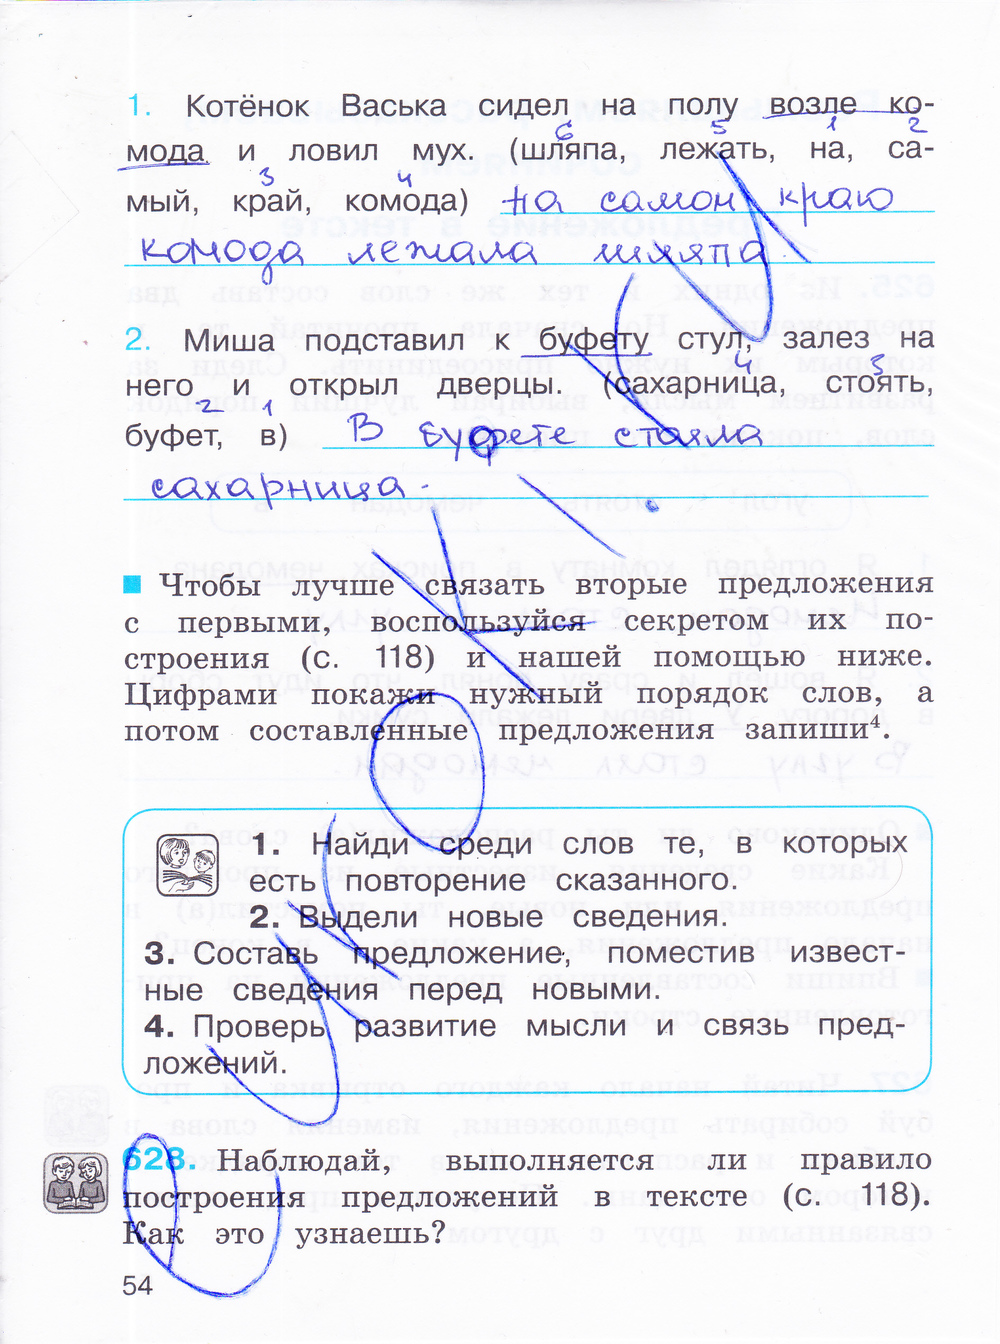 1. Котёнок Васька сидел на полу возле ко-
6 5 1 2
мода и ловил мух. (шляпа, лежать, на, са-
3 4
мый, край, комода) На самом краю
комода лежала шляпа.
2. Миша подставил к буфету стул, залез на
4 3
него и открыл дверцы. (сахарница, стоять,
2 1
буфет, в) В буфете стояла
сахарница.
Чтобы лучше связать вторые предложения
с первыми, воспользуйся секретом их по-
строения (с. 118) и нашей помощью ниже.
Цифрами покажи нужный порядок слов, а
потом составленные предложения запиши⁴.
1. Найди среди слов те, в которых
есть повторение сказанного.
2. Выдели новые сведения.
3. Составь предложение, поместив извест-
ные сведения перед новыми.
4. Проверь развитие мысли и связь пред-
ложений.
628. Наблюдай, выполняется ли правило
построения предложений в тексте (с. 118).
Как это узнаешь?
54